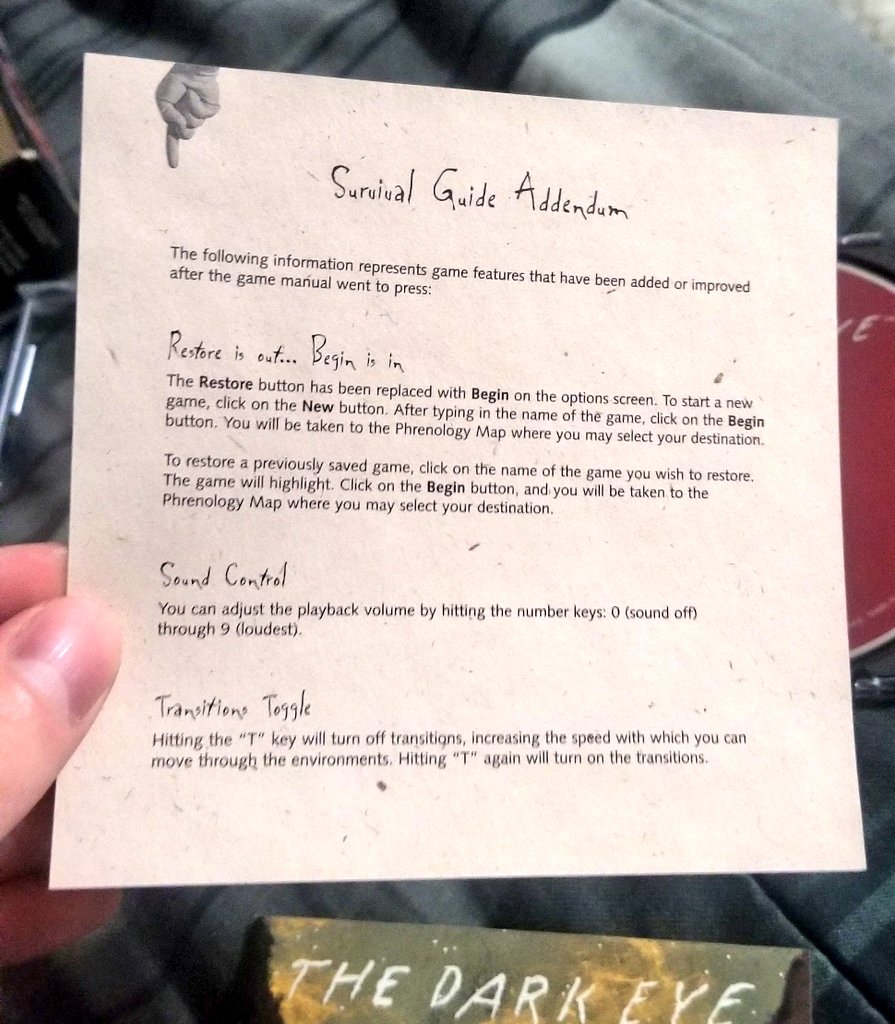 Survival Guide Addendum
The following information represents game features that have been added or improved
after the game manual went to press:
Restore is out... Begin is in
The Restore button has been replaced with Begin on the options screen. To start a new
game, click on the New button. After typing in the name of the game, click on the Begin
button. You will be taken to the Phrenology Map where you may select your destination.
To restore a previously saved game, click on the name of the game you wish to restore.
The game will highlight. Click on the Begin button, and you will be taken to the
Phrenology Map where you may select your destination.
Sound Control
You can adjust the playback volume by hitting the number keys: 0 (sound off)
through 9 (loudest).
Transitions Toggle
Hitting the "T" key will turn off transitions, increasing the speed with which you can
move through the environments. Hitting "T" again will turn on the transitions.
THE DARK EYE